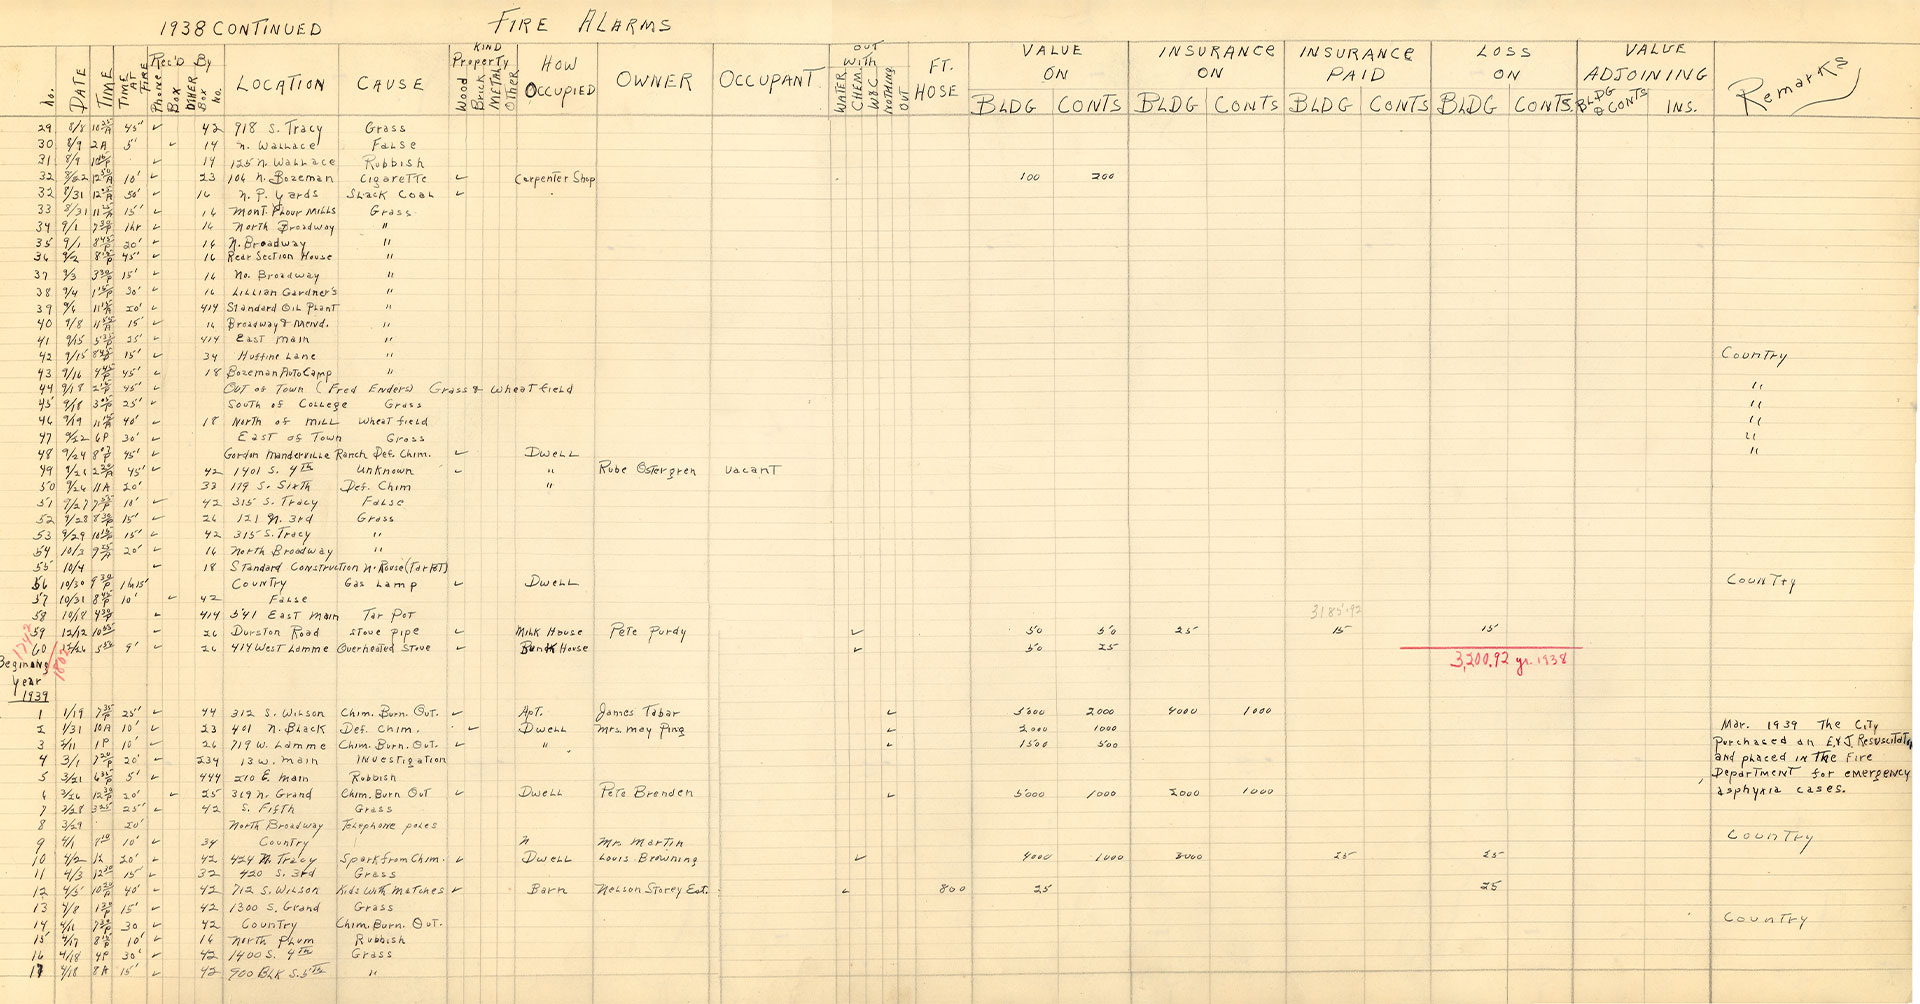 1938 CONTINUED FIRE ALARMS
No. DATE TIME TIME AT FIRE REC'D BY Phone Box OTHER Box No. LOCATION CAUSE KIND Property Wood Brick METAL Other HOW OCCUPIED OWNER OCCUPANT OUT WITH WATER CHEM. W&C NOTHING OUT FT. HOSE VALUE ON BLDG CONTS INSURANCE ON BLDG CONTS INSURANCE PAID BLDG CONTS LOSS ON BLDG CONTS. VALUE ADJOINING BLDG & CONTS INS. Remarks
29 8/8 45' ✓ 42 918 S. Tracy Grass
30 8/9 2A 5' ✓ 14 N. Wallace False
31 8/9 ✓ 14 125 N. Wallace Rubbish
32 10' ✓ 23 106 N. Bozeman Cigarette ✓ Carpenter Shop 100 200
32 8/31 50' ✓ 16 N. P. Yards Slack Coal ✓
33 8/31 15' ✓ 16 Mont. Flour Mills Grass
34 9/1 1hr ✓ 16 North Broadway "
35 9/1 20' ✓ 16 N. Broadway "
36 9/2 45' ✓ 16 Rear Section House "
37 9/3 15' ✓ 16 No. Broadway "
38 9/4 30' ✓ 16 Lillian Gardner's "
39 20' ✓ 414 Standard Oil Plant "
40 9/8 15' ✓ 16 Broadway & Mend. "
41 9/15 25' ✓ 414 East Main "
42 9/15 15' ✓ 34 Huffine Lane " Country
43 9/16 45' ✓ 18 Bozeman Auto Camp "
44 9/18 45' ✓ Out of Town (Fred Enders) Grass & Wheatfield "
45 9/18 25' ✓ South of College Grass "
46 9/19 40' ✓ 18 North of Mill Wheatfield "
47 9/22 6P 30' ✓ East of Town Grass "
48 9/24 45' ✓ Gordon Manderville Ranch Def. Chim. ✓ Dwell "
49 45' ✓ 42 1401 S. 4th Unknown ✓ " Rube Ostergren Vacant
50 9/26 11A 20' 33 119 S. Sixth Def. Chim "
51 9/27 10' ✓ 42 315 S. Tracy False
52 9/28 15' ✓ 26 121 N. 3rd Grass
53 9/29 15' ✓ 42 315 S. Tracy "
54 10/3 20' ✓ 16 North Broadway "
55 10/4 ✓ 18 Standard Construction N. Rouse (Tar Pot)
56 10/30 1hr 15' Country Gas Lamp ✓ Dwell Country
57 10/31 10' ✓ 42 False
58 ✓ 414 541 East Main Tar Pot 3185.92
59 12/12 ✓ 26 Durston Road Stove pipe ✓ Milk House Pete Purdy ✓ 50 50 25 15 15
60 9' ✓ 26 414 West Lamme Overheated Stove Bunk House ✓ 50 25
1742
1802
3,200.92 yr. 1938
Begining
year
1939
1 1/19 25' ✓ 44 312 S. Wilson Chim. Burn. Out. ✓ Apt. James Tabar ✓ 5000 2000 4000 1000
2 1/31 10A 10' ✓ 23 401 N. Black Def. Chim. ✓ Dwell Mrs. May Ping ✓ 2000 1000
3 1P 10' ✓ 26 719 W. Lamme Chim. Burn. Out. ✓ " ✓ 1500 500
4 3/1 20' ✓ 234 13 W. Main Investigation
5 3/21 5' ✓ 444 210 E. Main Rubbish
6 3/26 20' ✓ 25 319 N. Grand Chim. Burn Out ✓ Dwell Pete Brenden ✓ 5000 1000 2000 1000
7 3/28 25' ✓ 42 S. Fifth Grass
8 3/29 20' North Broadway Telephone poles
Mar. 1939 The City
purchased an E&J Resuscitator
and placed in the Fire
Department for emergency
asphyxia cases.
9 4/1 10' ✓ 34 Country " Mr. Martin Country
10 4/2 12 20' ✓ 42 424 N. Tracy Spark from Chim. ✓ Dwell Louis Browning ✓ 4000 1000 3000 25 25
11 4/3 15' ✓ 32 420 S. 3rd Grass
12 4/5 40' ✓ 42 712 S. Wilson Kids with matches ✓ Barn Nelson Storey Est. ✓ 800 25 25
13 4/8 15' ✓ 42 1300 S. Grand Grass
14 4/11 30 ✓ 42 Country Chim. Burn. Out. Country
15 4/17 10' ✓ 16 North Plum Rubbish
16 4/18 4P 30' ✓ 42 1400 S. 4th Grass
17 4/18 8A 15' ✓ 42 900 Blk S. 5th "